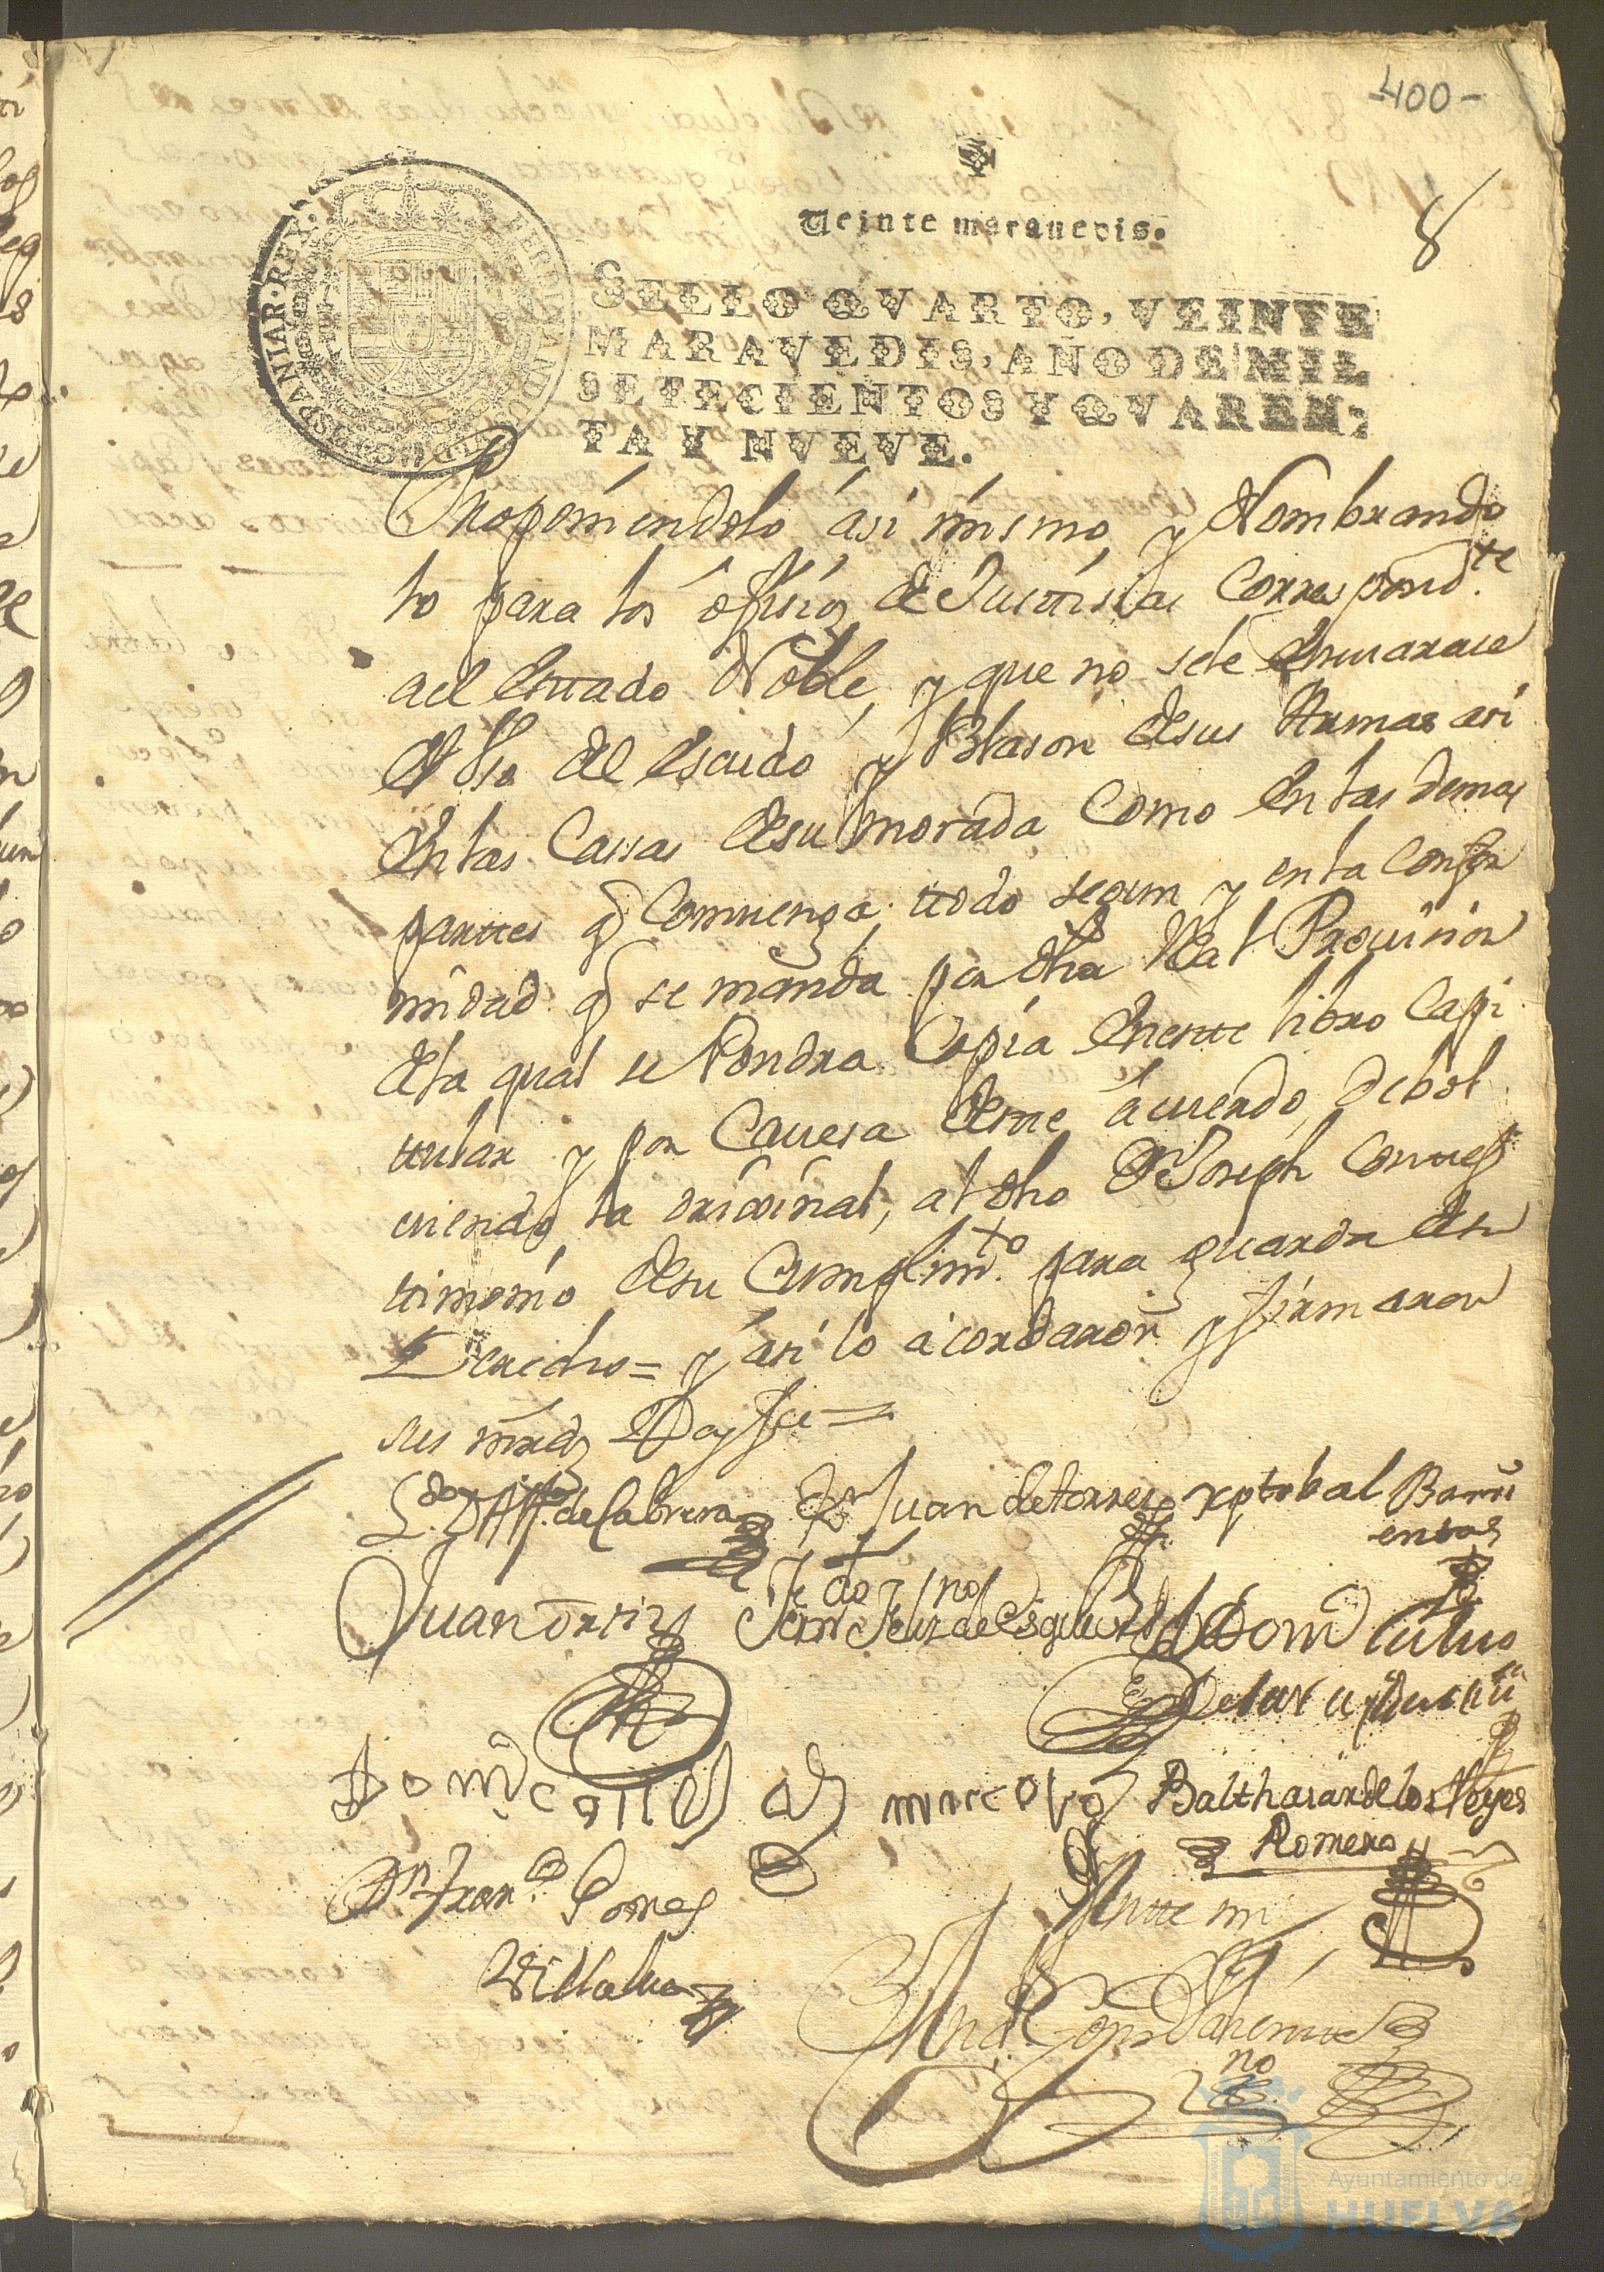 -400-
8
Veinte maravedis.
SELLO QVARTO, VEINTE
MARAVEDIS, AÑO DE MIL
SETECIENTOS Y QVAREN-
TA Y NVEVE.
HISPANIAR·REX·
FERDINANDUS
Proponiendolo asi mismo, y Nombrando
lo para los ofisios de Justisias Correspond.te
ael Estado Noble, y que no sele Envarase
el Uso del escudo y Blason desus Armas asi
En las Cassas desu morada Como En las demas
parttes q Comvenga ttodo segun y en la Confor
midad q se manda por dha Real Provision
dela qual se Pondra Copia En estte libro Capi
ttular y por Cavesa destte acuerdo, debol
viendo la original, al dho Dn Joseph Con ttes
timonio desu Cumplim.to para guarda de su
Derecho = y asi lo acordaron y firmaron
sus mrds Doy fee =
L.do D Alf. de Cabrera
Dn Juan de torres
xptobal Barri
entos
Juan ortiz
Feliz de Esquivel
Dom
Balthasar de los Reyes
Romero
Dn Fran.co Gomez
Villalva
Antte mi
no
Ayuntamiento de
HUELVA